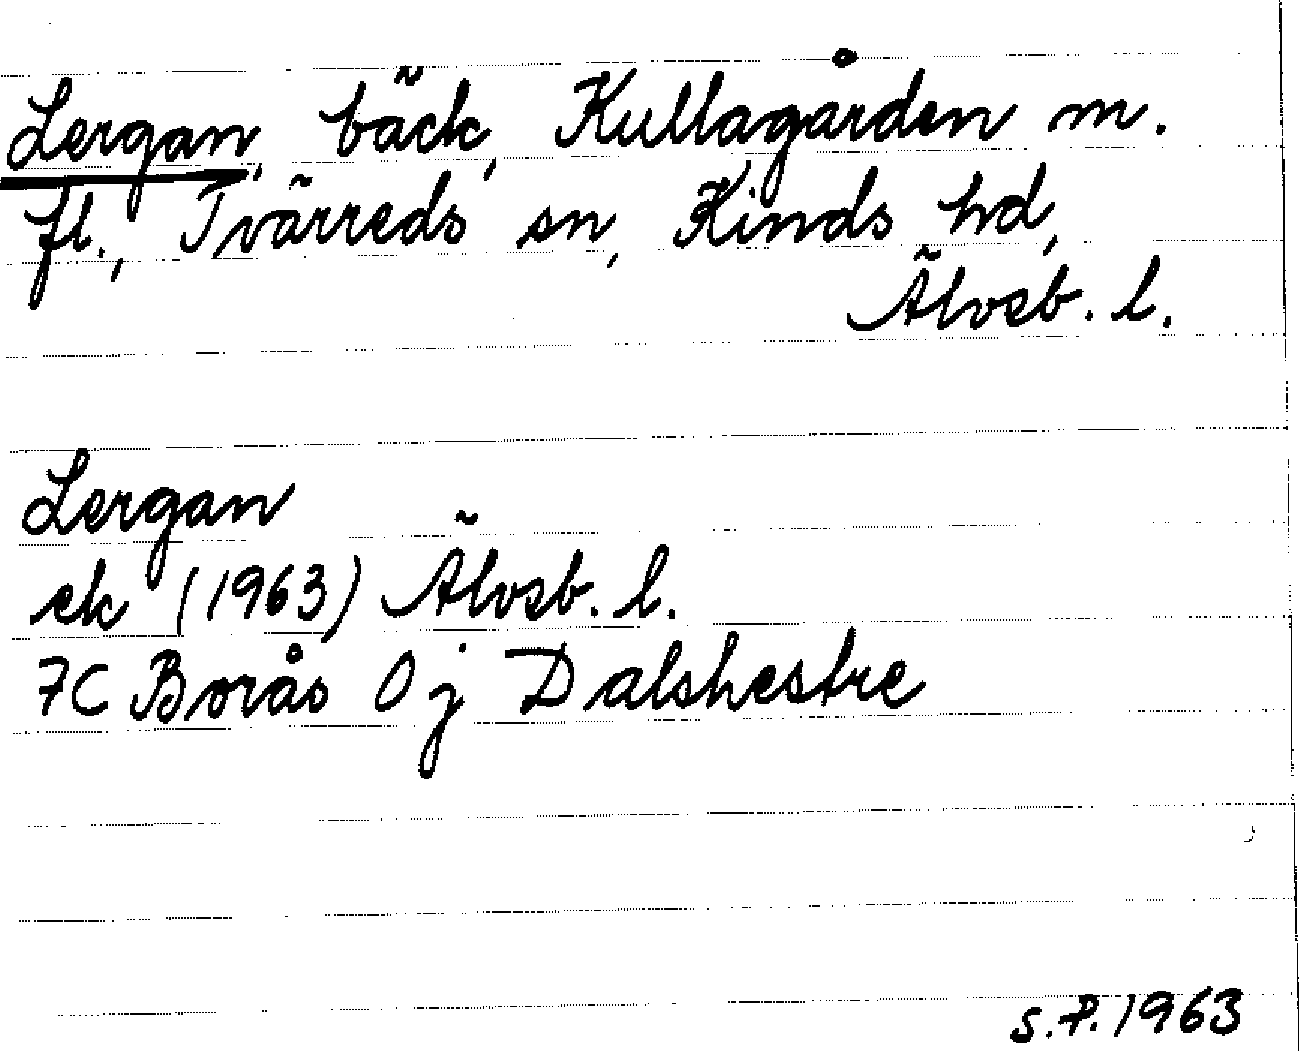 Lergan, bäck, Kullagården m.
fl., Tvärreds sn, Kinds hd,
Älvsb. l.
Lergan
ek (1963) Älvsb. l.
7C Borås 0j Dalshestre
S.P. 1963